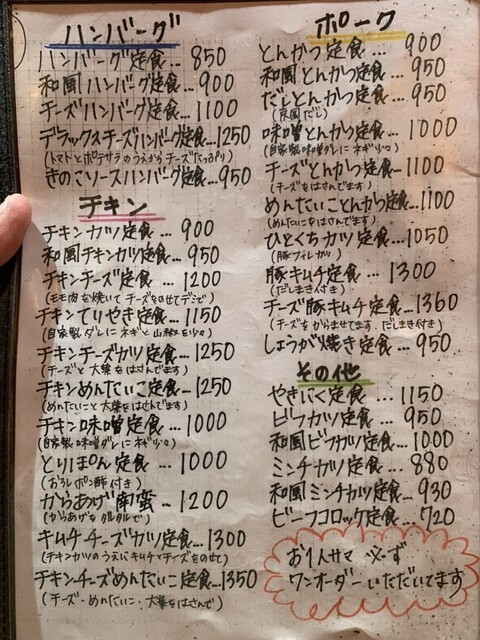 ハンバーグ
ハンバーグ定食…850
和風ハンバーグ定食…900
チーズハンバーグ定食…1100
デラックスチーズハンバーグ定食…1250
(トマトとポテサラのうえからチーズたっぷり)
きのこソースハンバーグ定食…950
チキン
チキンカツ定食…900
和風チキンカツ定食…950
チキンチーズ定食…1200
(モモ肉を焼いてチーズをのせてデミで)
チキンてりやき定食…1150
(自家製ダレにネギと山椒を少々)
チキンチーズカツ定食…1250
(チーズと大葉をはさんでます)
チキンめんたいこ定食…1250
(めんたいこと大葉をはさんでます)
チキン味噌定食…1000
(自家製味噌ダレにネギ少々)
とりぽん定食…1000
(おろしポン酢付き)
からあげ南蛮…1200
(からあげをタルタルで)
キムチチーズカツ定食…1300
(チキンカツのうえにキムチとチーズをのせて)
チキンチーズめんたいこ定食…1350
(チーズ・めんたいこ・大葉をはさんで)
ポーク
とんかつ定食…900
和風とんかつ定食…950
だしとんかつ定食…950
味噌とんかつ定食…1000
(自家製味噌ダレにネギ少々)
チーズとんかつ定食…1100
(チーズをはさんでます)
めんたいことんかつ定食…1100
(めんたいこをはさんでます)
ひとくちカツ定食…1050
(豚フィレカツ)
豚キムチ定食…1300
(だしまき付き)
チーズ豚キムチ定食…1360
(チーズをからませてます、だしまき付き)
しょうが焼き定食…950
その他
やきにく定食…1150
ビフカツ定食…950
和風ビフカツ定食…1000
ミンチカツ定食…880
和風ミンチカツ定食…930
ビーフコロッケ定食…720
お1人サマ 必ず
ワンオーダーいただいてます